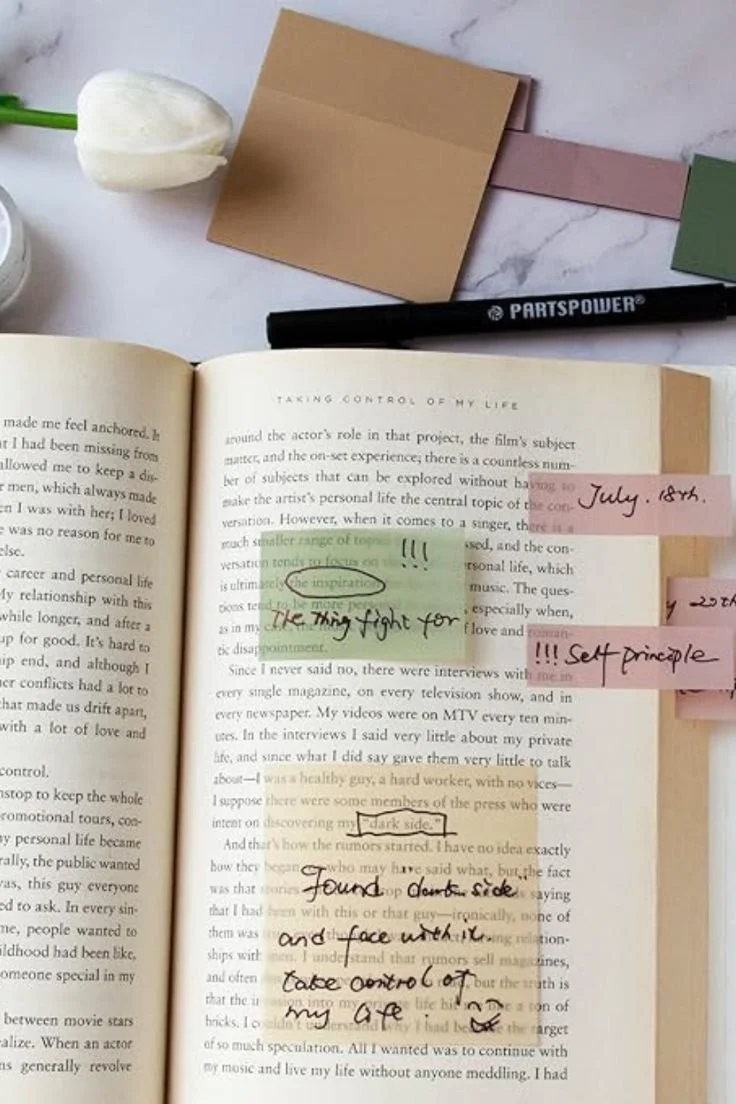 PARTSPOWER®
made me feel anchored. It
I had been missing from
allowed me to keep a dis-
men, which always made
n I was with her; I loved
was no reason for me to
else.
career and personal life
My relationship with this
while longer, and after a
up for good. It's hard to
ip end, and although I
er conflicts had a lot to
that made us drift apart,
with a lot of love and
control.
nstop to keep the whole
romotional tours, con-
my personal life became
rally, the public wanted
was, this guy everyone
ed to ask. In every sin-
me, people wanted to
ildhood had been like,
omeone special in my
between movie stars
alize. When an actor
ns generally revolve
TAKING CONTROL OF MY LIFE
around the actor's role in that project, the film's subject
matter, and the on-set experience; there is a countless num-
ber of subjects that can be explored without having to
make the artist's personal life the central topic of the con-
versation. However, when it comes to a singer, there is a
much smaller range of topics ssed, and the con-
versation tends to focus on rsonal life, which
is ultimately the inspiration music. The ques-
tions tend to be more pers , especially when,
as in my love and roman-
tic disappointment.
Since I never said no, there were interviews with me in
every single magazine, on every television show, and in
every newspaper. My videos were on MTV every ten min-
utes. In the interviews I said very little about my private
life, and since what I did say gave them very little to talk
about—I was a healthy guy, a hard worker, with no vices—
I suppose there were some members of the press who were
intent on discovering my "dark side."
And that's how the rumors started. I have no idea exactly
how they began who may have said what, but the fact
was that saying
that I had been with this or that guy—ironically, none of
them was relation-
ships with I understand that rumors sell magazines,
and often but the truth is
that the invasion into my private life hit me like a ton of
bricks. I couldn't understand why I had become the target
of so much speculation. All I wanted was to continue with
my music and live my life without anyone meddling. I had
July. 18th.
!!!
The thing fight for
20th
!!! Self principle
Found dark side
and face with it.
take control of
my life.